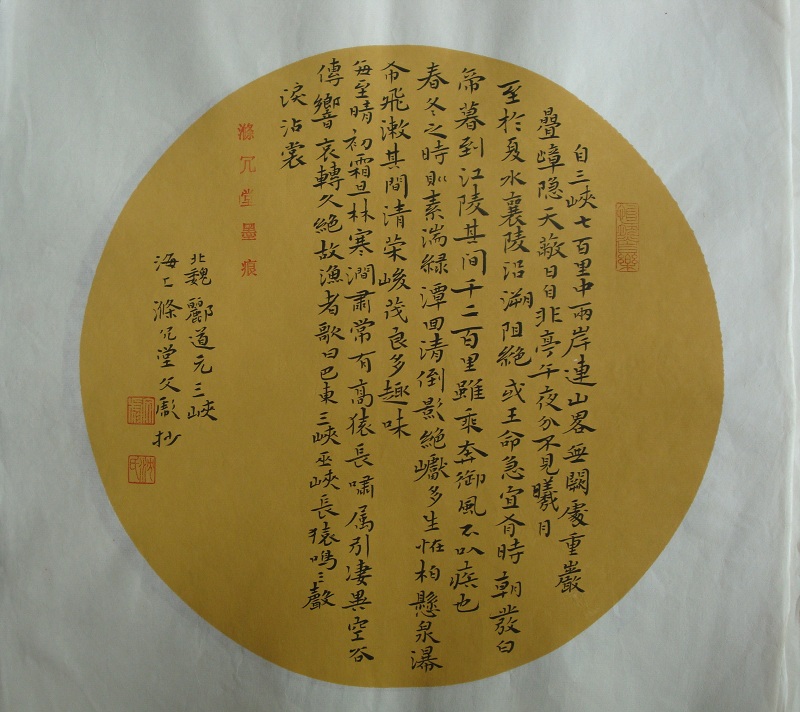 自三峽七百里中兩岸連山畧無闕處重巖
疊嶂隐天蔽日自非亭午夜分不見曦月
至於夏水襄陵沿溯阻絶或王命急宣有時朝發白
帝暮到江陵其间千二百里雖乘奔御風不以疾也
春冬之時則素湍緑潭回清倒影絶巘多生怪柏懸泉瀑
布飛漱其間清荣峻茂良多趣味
每至晴初霜旦林寒澗肅常有高猿長嘯属引凄異空谷
傳響哀轉久絶故漁者歌曰巴東三峽巫峽長猿鳴三聲
淚沾裳
北魏酈道元三峽
海上滌冗堂父獻抄
滌冗堂墨痕